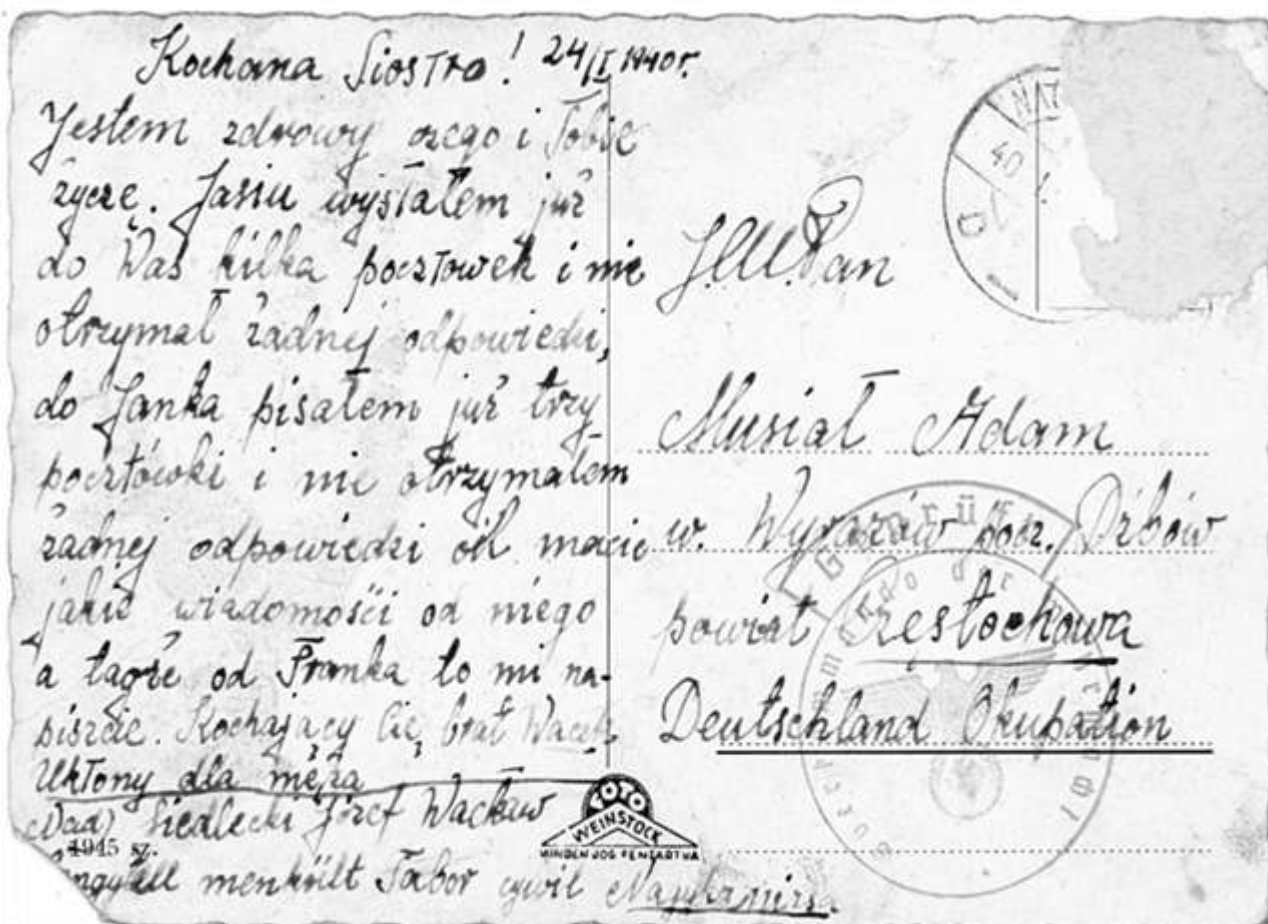 Kochana Siostro! 24/I 1940 r.
Jestem zdrowy czego i Tobie
życzę. Jasiu wysłałem już
do Was kilka pocztowek i nie
otrzymał żadnej odpowiedzi,
do Janka pisałem już trzy
pocztówki i nie otrzymałem
żadnej odpowiedzi macie
jakie wiadomości od niego
a tagże od Franka to mi na-
piszcie. Kochający Cię brat Wacek
Ukłony dla męża
Siedlecki Józef Wacław
1945 sz.
menküllt Tabor cywil
FOTO
WEINSTOCK
MINDEN JOG FENTARTVA
J.W.Pan
Musiał Adam
w. Wyrazów pocz. Dźbów
powiat Częstochowa
Deutschland Okupation
40
Geprüft